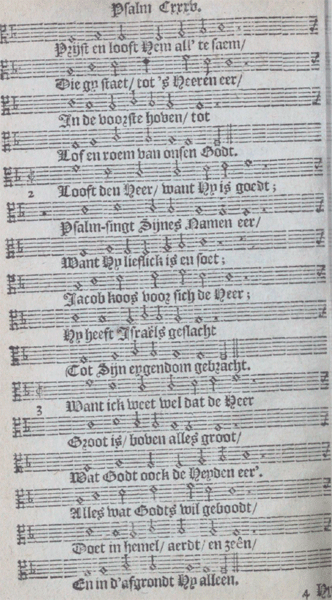 Psalm Cxxxv.
Prijst en looft Hem all' te saem/
Die gy staet/ tot 's Heeren eer/
In de voorste hoven/ tot
Lof en roem van onsen Godt.
2 Looft den Heer/ want Hy is goedt;
Psalm-singt Sijnes Namen eer/
Want Hy lieflick is en soet;
Jacob koos voor sich de Heer;
Hy heeft Israëls geslacht
Tot Sijn eygendom gebracht.
3 Want ick weet wel dat de Heer
Groot is/ boven alles groot/
Wat Godt oock de Heyden eer'.
Alles wat Godts wil geboodt/
Doet in hemel/ aerdt/ en zeên/
En in d'afgrondt Hy alleen.
4